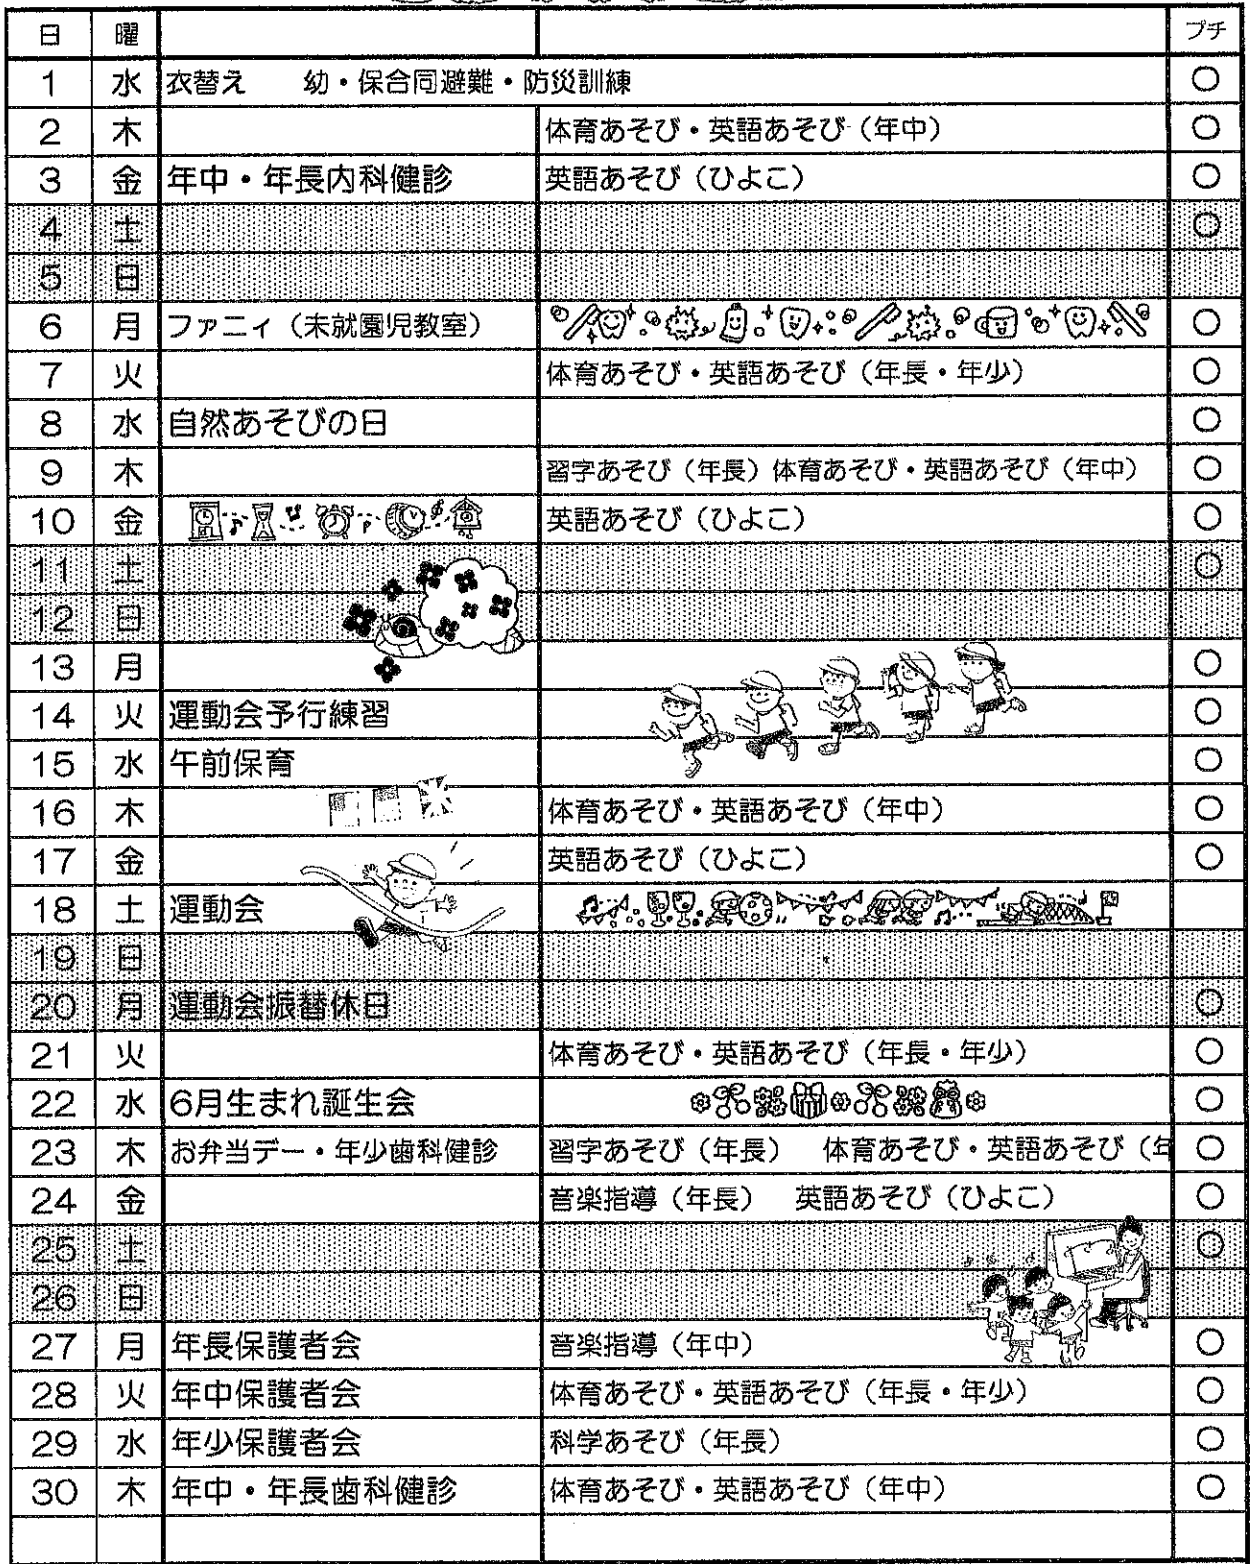 日 曜 プチ
1 水 衣替え 幼・保合同避難・防災訓練 ○
2 木 体育あそび・英語あそび（年中） ○
3 金 年中・年長内科健診 英語あそび（ひよこ） ○
4 土 ○
5 日
6 月 ファニィ（未就園児教室） ○
7 火 体育あそび・英語あそび（年長・年少） ○
8 水 自然あそびの日 ○
9 木 習字あそび（年長）体育あそび・英語あそび（年中） ○
10 金 英語あそび（ひよこ） ○
11 土 ○
12 日
13 月 ○
14 火 運動会予行練習 ○
15 水 午前保育 ○
16 木 体育あそび・英語あそび（年中） ○
17 金 英語あそび（ひよこ） ○
18 土 運動会
19 日
20 月 運動会振替休日 ○
21 火 体育あそび・英語あそび（年長・年少） ○
22 水 6月生まれ誕生会 ○
23 木 お弁当デー・年少歯科健診 習字あそび（年長） 体育あそび・英語あそび（年 ○
24 金 音楽指導（年長） 英語あそび（ひよこ） ○
25 土 ○
26 日
27 月 年長保護者会 音楽指導（年中） ○
28 火 年中保護者会 体育あそび・英語あそび（年長・年少） ○
29 水 年少保護者会 科学あそび（年長） ○
30 木 年中・年長歯科健診 体育あそび・英語あそび（年中） ○